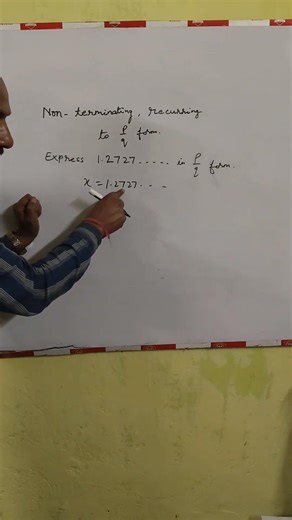 Non-terminating, recurring
to p/q form.
Express 1.2727..... in p/q form.
x = 1.2727...